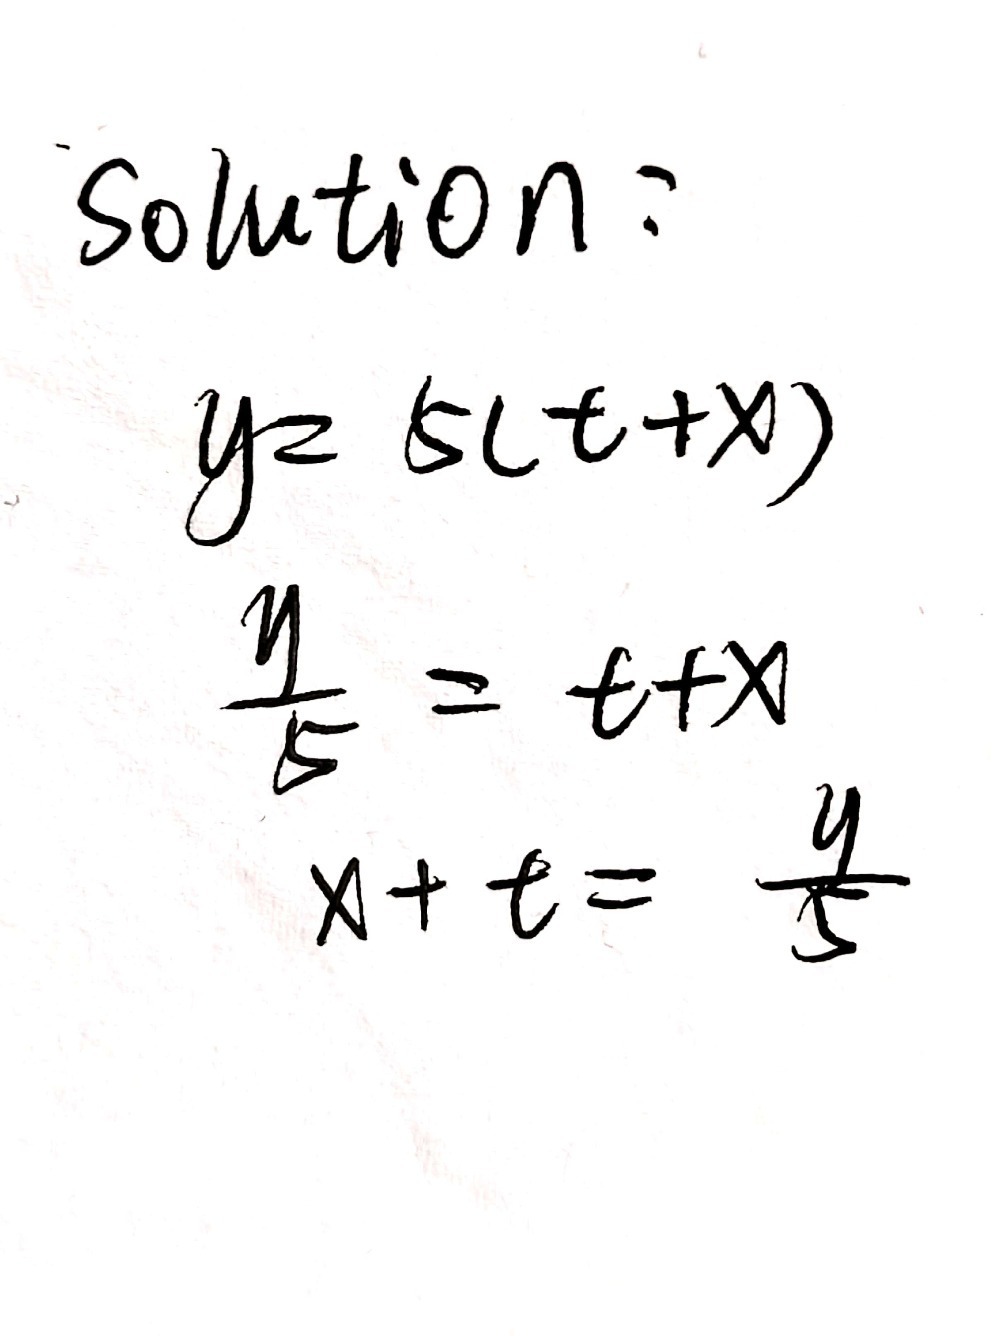 Solution:
y = 5(t+x)
y/5 = t+x
x+t = y/5